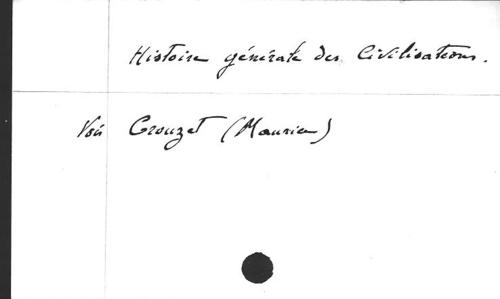 Histoire générale des Civilisations.
Voir Crouzet (Maurice)